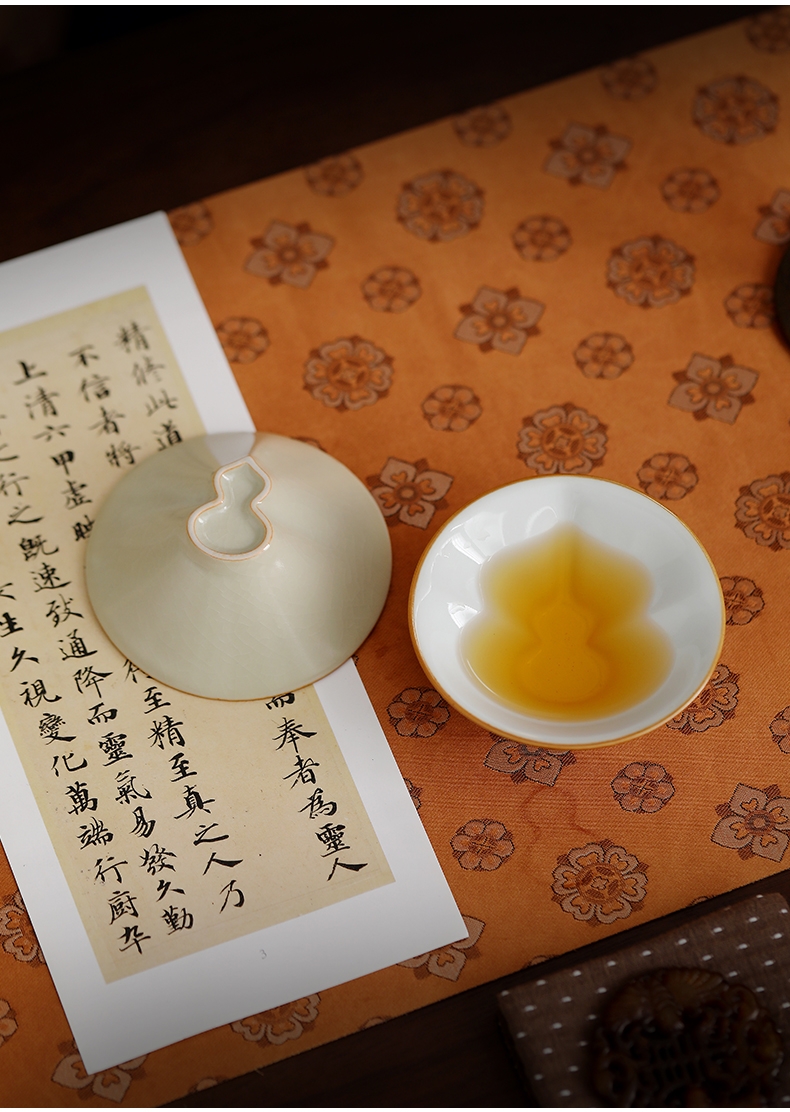 精修此道 而奉者為靈人
不信者將
上清六甲虛 至精至真之人乃
行之既速致通降而靈氣易發久勤
生久視變化萬端行厨卒
3